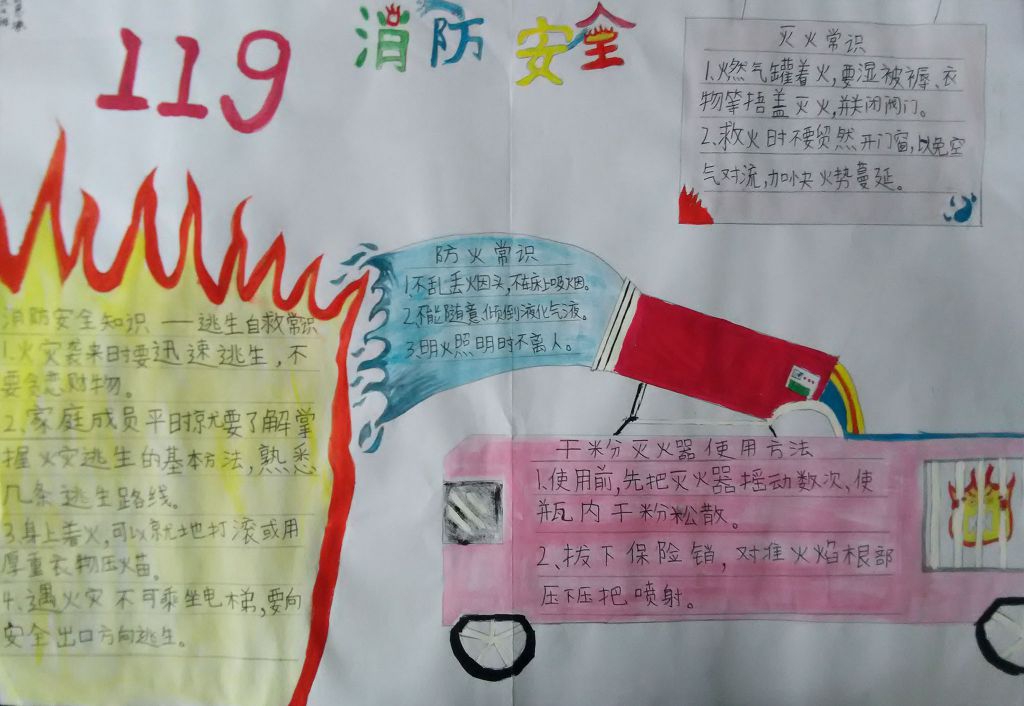 119
消防安全
灭火常识
1.燃气罐着火,要湿被褥、衣
物等捂盖灭火,并关闭阀门。
2.救火时不要贸然开门窗,以免空
气对流,加快火势蔓延。
防火常识
1.不乱丢烟头,不在床上吸烟。
2.不能随意倾倒液化气液。
3.明火照明时不离人。
消防安全知识——逃生自救常识
1.火灾袭来时要迅速逃生,不
要贪恋财物。
2.家庭成员平时就要了解掌
握火灾逃生的基本方法,熟悉
几条逃生路线。
3.身上着火,可以就地打滚或用
厚重衣物压火苗。
4.遇火灾不可乘坐电梯,要向
安全出口方向逃生。
干粉灭火器使用方法
1.使用前,先把灭火器摇动数次、使
瓶内干粉松散。
2、拔下保险销,对准火焰根部
压下压把喷射。